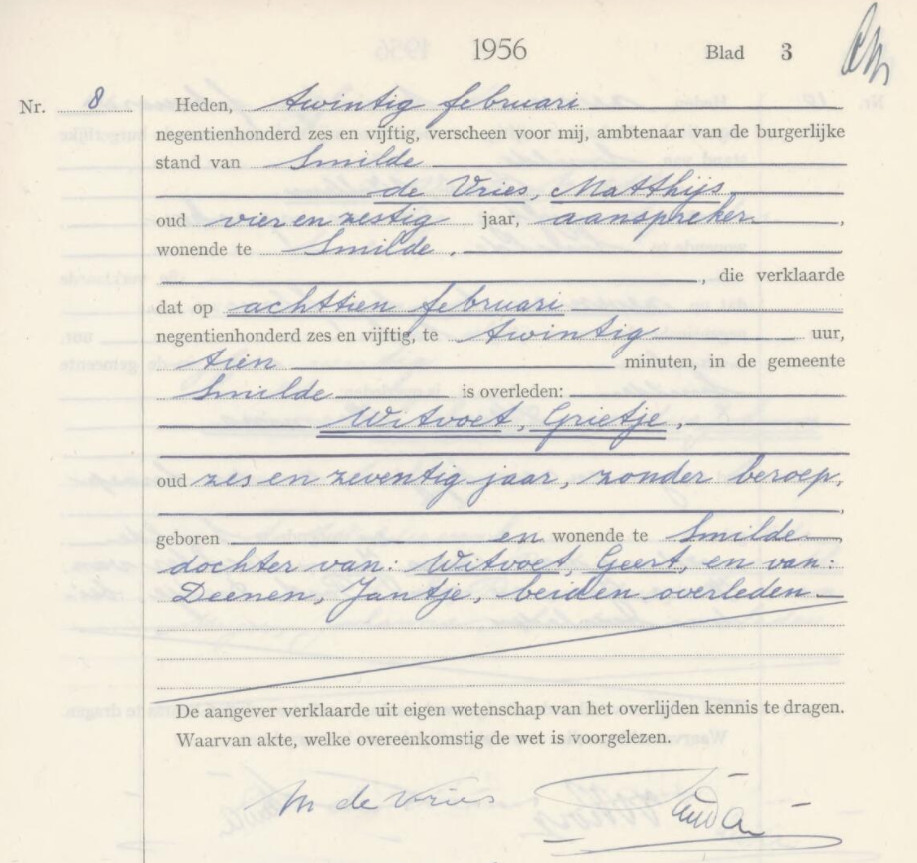 1956
Blad 3
Nr. 8 Heden, twintig februari
negentienhonderd zes en vijftig, verscheen voor mij, ambtenaar van de burgerlijke
stand van Smilde
de Vries, Matthijs
oud vier en zestig jaar, aanspreker,
wonende te Smilde.
, die verklaarde
dat op achttien februari
negentienhonderd zes en vijftig, te twintig uur,
tien minuten, in de gemeente
Smilde is overleden:
Witvoet, Grietje,
oud zes en zeventig jaar, zonder beroep,
geboren en wonende te Smilde,
dochter van: Witvoet, Geert, en van:
Deenen, Jantje, beiden overleden
De aangever verklaarde uit eigen wetenschap van het overlijden kennis te dragen.
Waarvan akte, welke overeenkomstig de wet is voorgelezen.
M de Vries